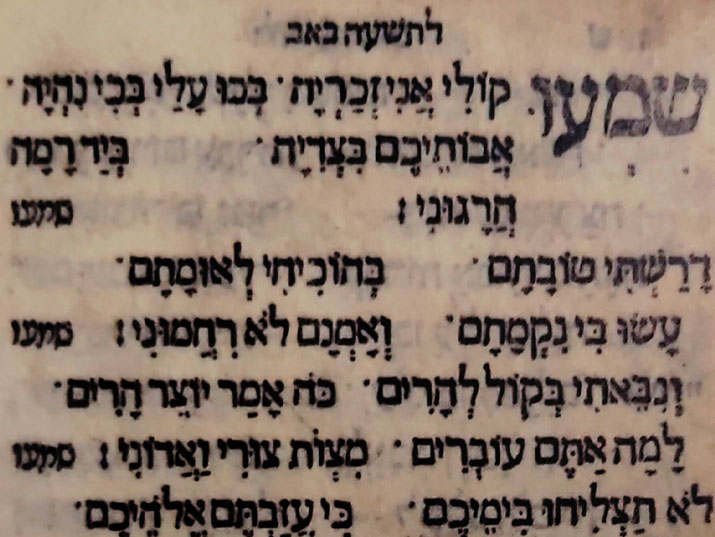 לתשעה באב
שִׁמְעוּ קוֹלִי אֲנִי זְכַרְיָה · בְּכוּ עָלַי בְּכִי נִהְיָה ·
אֲבוֹתֵיכֶם בִּצְדִיָּה · בְּיַד רָמָה
הֲרָגוּנִי : שמעו
דָּרַשְׁתִּי טוֹבָתָם · בְּהוֹכִיחִי לְאוּמָּתָם ·
עָשׂוּ בִּי נִקְמָתָם · וְאָמְנָם לֹא רִחֲמוּנִי : שמעו
וְנִבֵּאתִי בְּקוֹל לְהָרִים · כֹּה אָמַר יוֹצֵר הָרִים ·
לָמָה אַתֶּם עוֹבְרִים · מִצְוֹת צוּרִי וַאֲדוֹנִי : שמעו
לֹא תַצְלִיחוּ בִּימֵיכֶם · כִּי עֲזַבְתֶּם אֱלֹהֵיכֶם ·